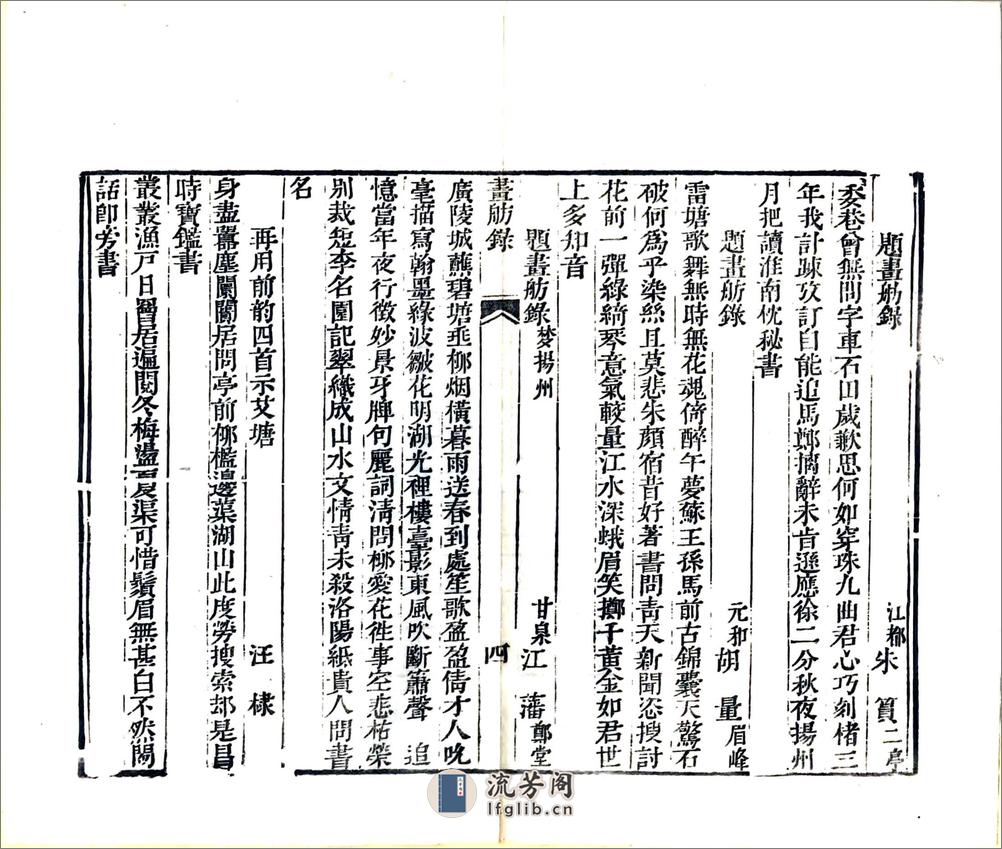 題畫舫錄 江都 朱篔 二亭
委巷曾無問字車石田歲歉思何如穿珠九曲君心巧刻楮三
年我計疎攷訂自能追馬鄭摛辭未肯遜應徐二分秋夜揚州
月把讀淮南枕秘書
題畫舫錄 元和 胡量 眉峰
雷塘歌舞無時無花魂倚醉午夢蘇王孫馬前古錦囊天驚石
破何為乎染絲且莫悲朱顏宿昔好著書問青天新聞恣搜討
花前一彈綠綺琴意氣較量江水深蛾眉笑擲千黃金如君世
上多知音
題畫舫錄 夢揚州 甘泉 江藩 鄭堂
畫舫錄 四
廣陵城蘸碧塘垂柳烟橫暮雨送春到處笙歌盈盈倩才人吮
毫描寫翰墨綠波皺花明湖光裡樓臺影東風吹斷簫聲 追
憶當年夜行徵妙景牙牌句麗詞清問柳愛花徃事空悲枯榮
別裁短李名園記翠織成山水文情青未殺洛陽紙貴人問書
名
再用前韵四首示艾塘 汪棣
身盡囂塵闤闠居問亭前柳檻邊蕖湖山此度勞搜索却是昌
時寶鑑書
叢叢漁戸日罾居遍閱冬梅盪夏渠可惜鬚眉無甚白不然閒
話卽旁書
流芳阁
lfglib.cn